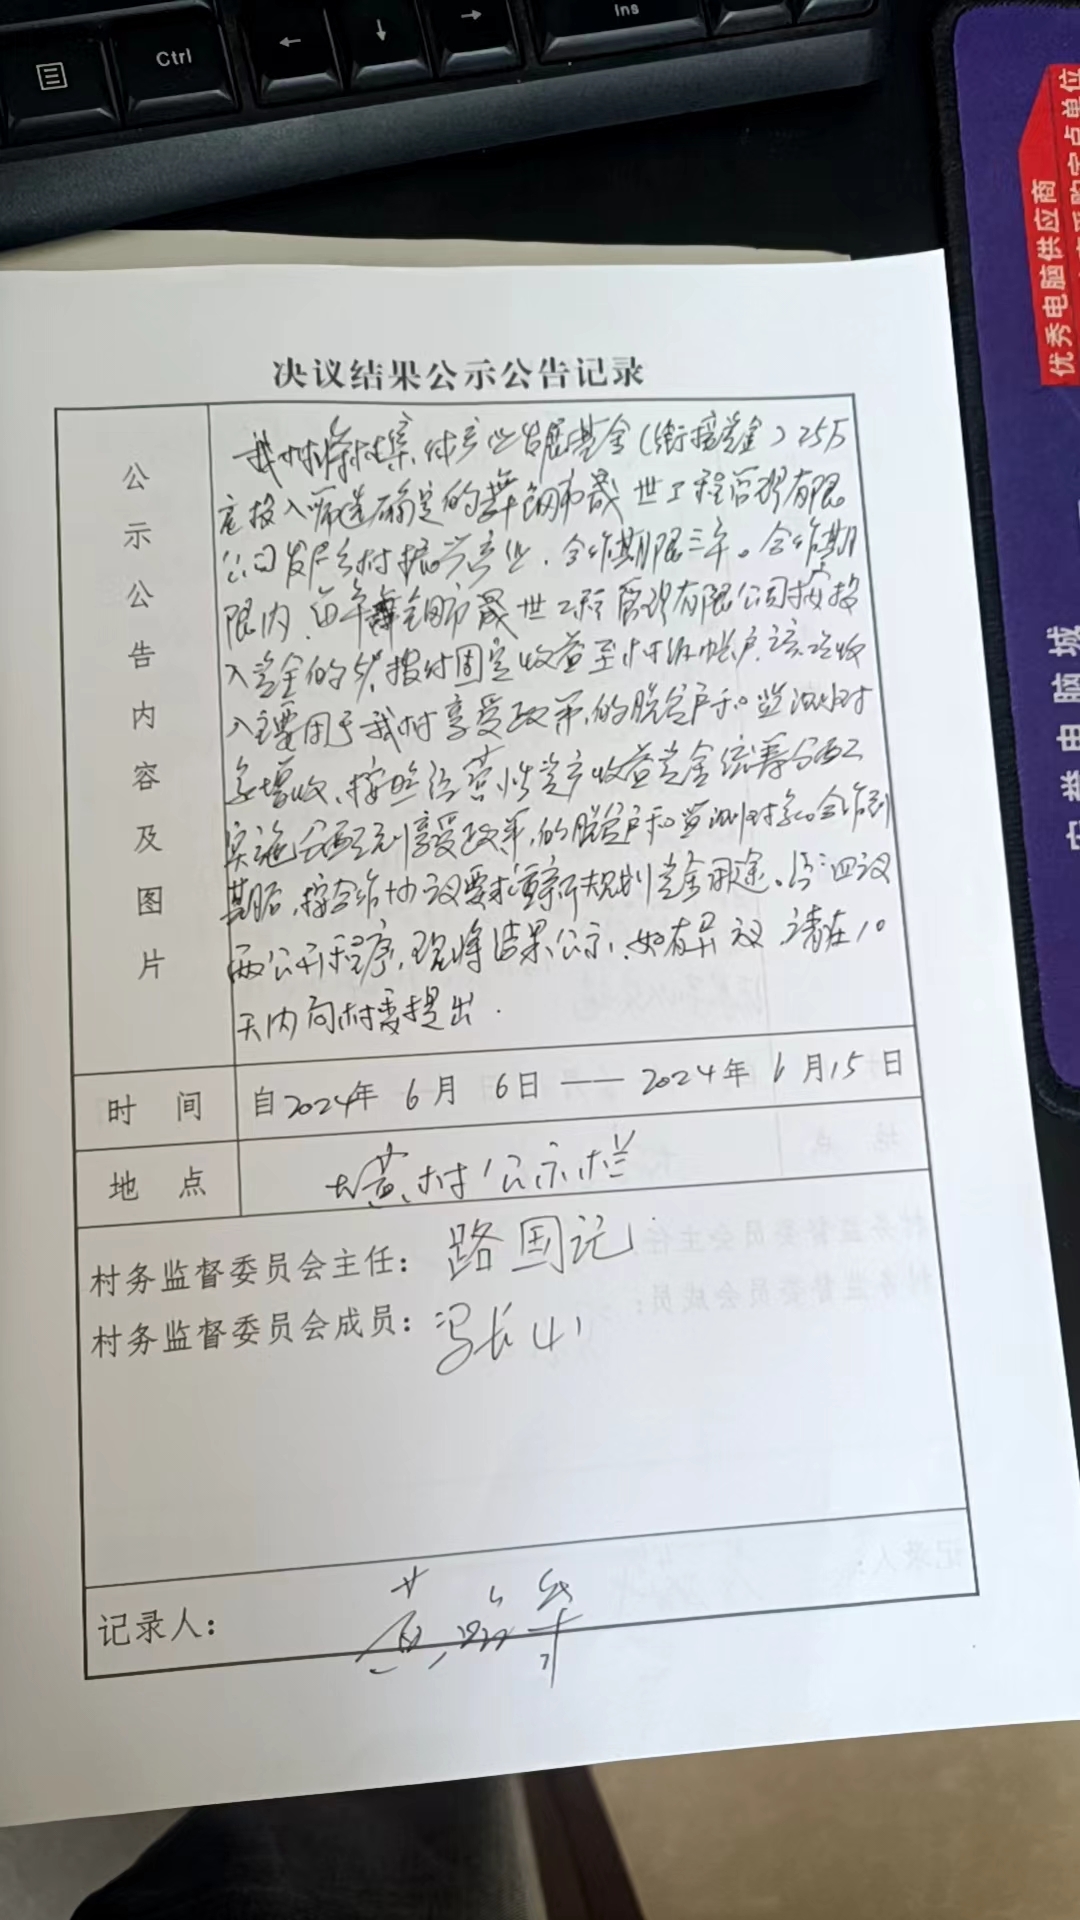 Ctrl
←
↓
→
Ins
优秀电脑供应商
电脑城
决议结果公示公告记录
公示公告内容及图片
我村将村集体产业发展基金（衔接资金）25万
元投入筛选确定的舞钢市晟世工程管理有限
公司发展乡村振兴产业，合作期限三年。合作期
限内，每年舞钢市晟世工程管理有限公司按投
入资金的5%拨付固定收益至村账户，该项收
入主要用于我村享受政策的脱贫户和监测对
象增收，按照经营性资产收益资金统筹分配
实施分配到享受政策的脱贫户和监测对象。合作到
期后，按合作协议要求重新规划资金用途。经四议
两公开程序，现将结果公示，如有异议，请在10
天内向村委提出.
时间 自2024年 6月 6日 —— 2024年 6月15日
地点 大黄村公示栏
村务监督委员会主任： 路国记
村务监督委员会成员： 冯长山
记录人：